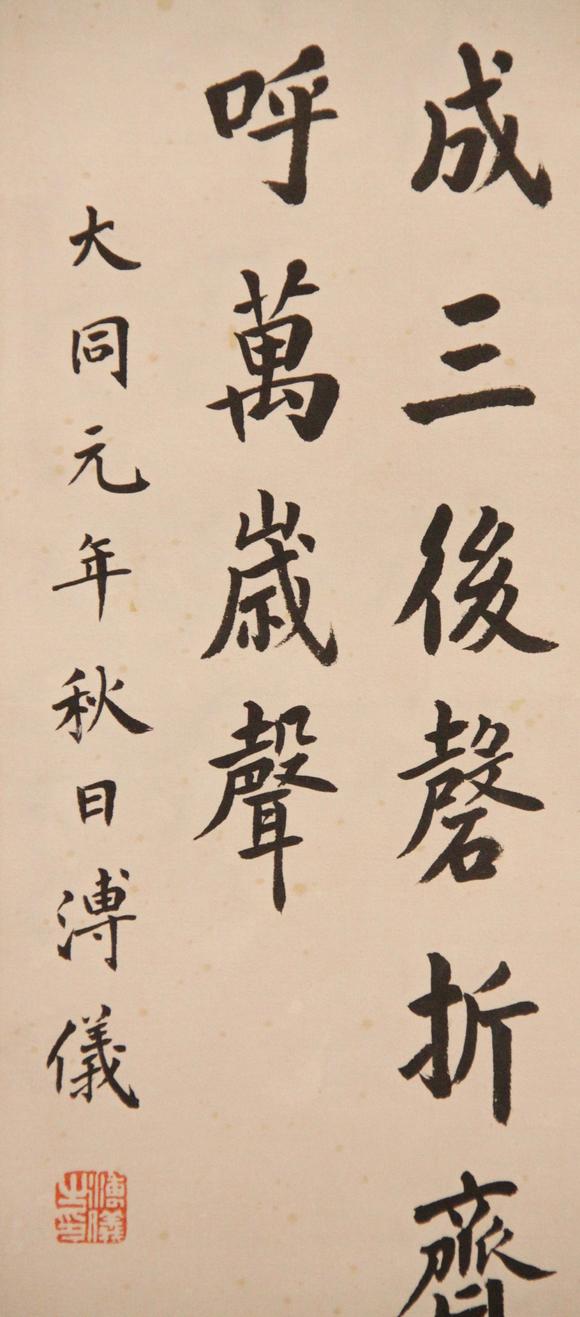 成三後磬折齊
呼萬歲聲
大同元年秋日溥儀
溥儀之印